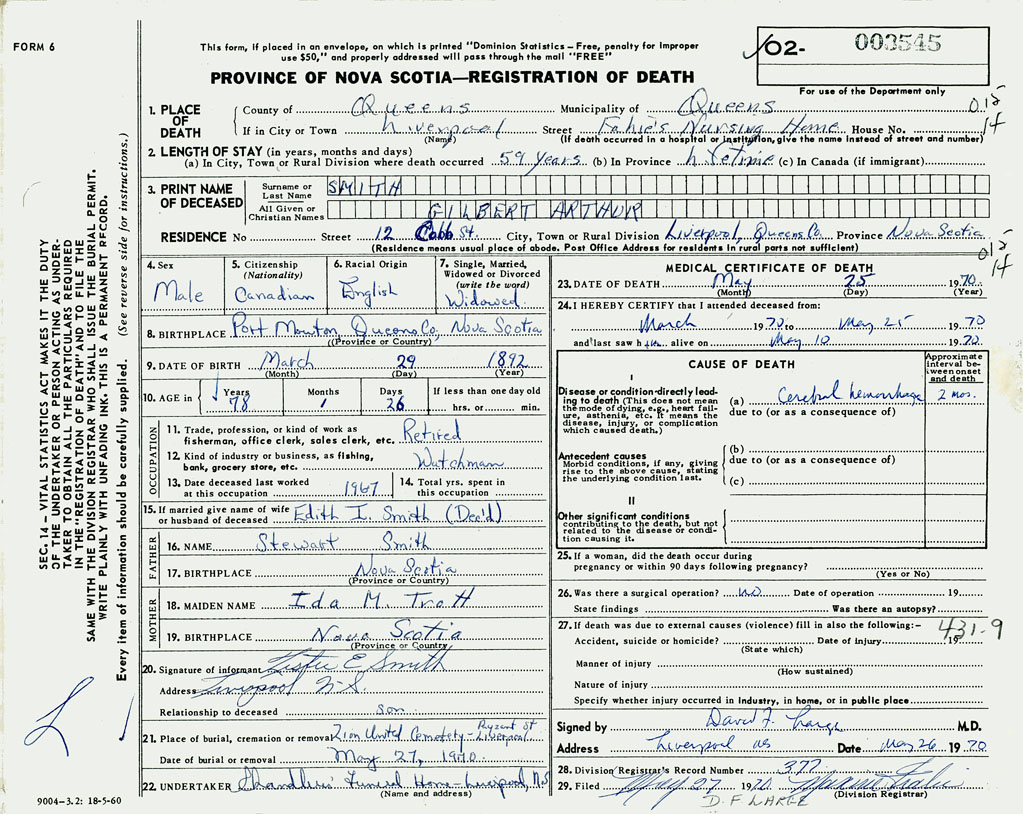 FORM 6
This form, if placed in an envelope, on which is printed "Dominion Statistics – Free, penalty for improper
use $50," and properly addressed will pass through the mail "FREE"
PROVINCE OF NOVA SCOTIA—REGISTRATION OF DEATH
02- 003545
For use of the Department only
1. PLACE OF DEATH
County of Queens Municipality of Queens 012
If in City or Town Liverpool Street Fahie's Nursing Home House No. 14
(Name) (If death occurred in a hospital or institution, give the name instead of street and number)
2. LENGTH OF STAY (in years, months and days)
(a) In City, Town or Rural Division where death occurred 59 years (b) In Province Lifetime (c) In Canada (if immigrant)
3. PRINT NAME OF DECEASED
Surname or Last Name SMITH
All Given or Christian Names GILBERT ARTHUR
RESIDENCE No Street 12 Cobb St. City, Town or Rural Division Liverpool, Queens Co. Province Nova Scotia
(Residence means usual place of abode. Post Office Address for residents in rural parts not sufficient)
012
14
4. Sex
Male
5. Citizenship (Nationality)
Canadian
6. Racial Origin
English
7. Single, Married, Widowed or Divorced (write the word)
Widowed
8. BIRTHPLACE Port Mouton, Queens Co, Nova Scotia
(Province or Country)
9. DATE OF BIRTH March 29 1892
(Month) (Day) (Year)
10. AGE in Years Months Days If less than one day old
78 1 26 hrs. or min.
OCCUPATION
11. Trade, profession, or kind of work as fisherman, office clerk, sales clerk, etc. Retired
12. Kind of industry or business, as fishing, bank, grocery store, etc. Watchman
13. Date deceased last worked at this occupation 1967
14. Total yrs. spent in this occupation
15. If married give name of wife or husband of deceased Edith I. Smith (Dec'd)
FATHER
16. NAME Stewart Smith
17. BIRTHPLACE Nova Scotia
(Province or Country)
MOTHER
18. MAIDEN NAME Ida M. Trott
19. BIRTHPLACE Nova Scotia
(Province or Country)
20. Signature of informant E Smith
Address Liverpool N.S.
Relationship to deceased son
21. Place of burial, cremation or removal Zion United Cemetery - Liverpool
Date of burial or removal May 27, 1970
22. UNDERTAKER Chandlers' Funeral Home - Liverpool, N.S
(Name and address)
9004–3.2: 18-5-60
MEDICAL CERTIFICATE OF DEATH
23. DATE OF DEATH May 25 1970
(Month) (Day) (Year)
24. I HEREBY CERTIFY that I attended deceased from:
March 1970 to May 25 1970
and last saw him alive on May 10 1970
CAUSE OF DEATH
Approximate interval between onset and death
I
Disease or condition directly leading to death (This does not mean the mode of dying, e.g., heart failure, asthenia, etc. It means the disease, injury, or complication which caused death.)
(a) Cerebral hemorrhage 2 mos.
due to (or as a consequence of)
Antecedent causes
Morbid conditions, if any, giving rise to the above cause, stating the underlying condition last.
(b)
due to (or as a consequence of)
(c)
II
Other significant conditions
contributing to the death, but not related to the disease or condition causing it.
25. If a woman, did the death occur during pregnancy or within 90 days following pregnancy?
(Yes or No)
26. Was there a surgical operation? no Date of operation 19
State findings Was there an autopsy?
27. If death was due to external causes (violence) fill in also the following:– 431-9
Accident, suicide or homicide? Date of injury 19
(State which)
Manner of injury
(How sustained)
Nature of injury
Specify whether injury occurred in industry, in home, or in public place
Signed by David F. Large M.D.
Address Liverpool NS Date May 26 1970
28. Division Registrar's Record Number 377
29. Filed May 27 1970
(Division Registrar)
D. F LARGE
SEC. 14 – VITAL STATISTICS ACT MAKES IT THE DUTY
OF THE UNDERTAKER OR PERSON ACTING AS UNDER-
TAKER TO OBTAIN ALL THE PARTICULARS REQUIRED
IN THE "REGISTRATION OF DEATH" AND TO FILE THE
SAME WITH THE DIVISION REGISTRAR WHO SHALL ISSUE THE BURIAL PERMIT.
WRITE PLAINLY WITH UNFADING INK. THIS IS A PERMANENT RECORD.
Every item of information should be carefully supplied. (See reverse side for instructions.)